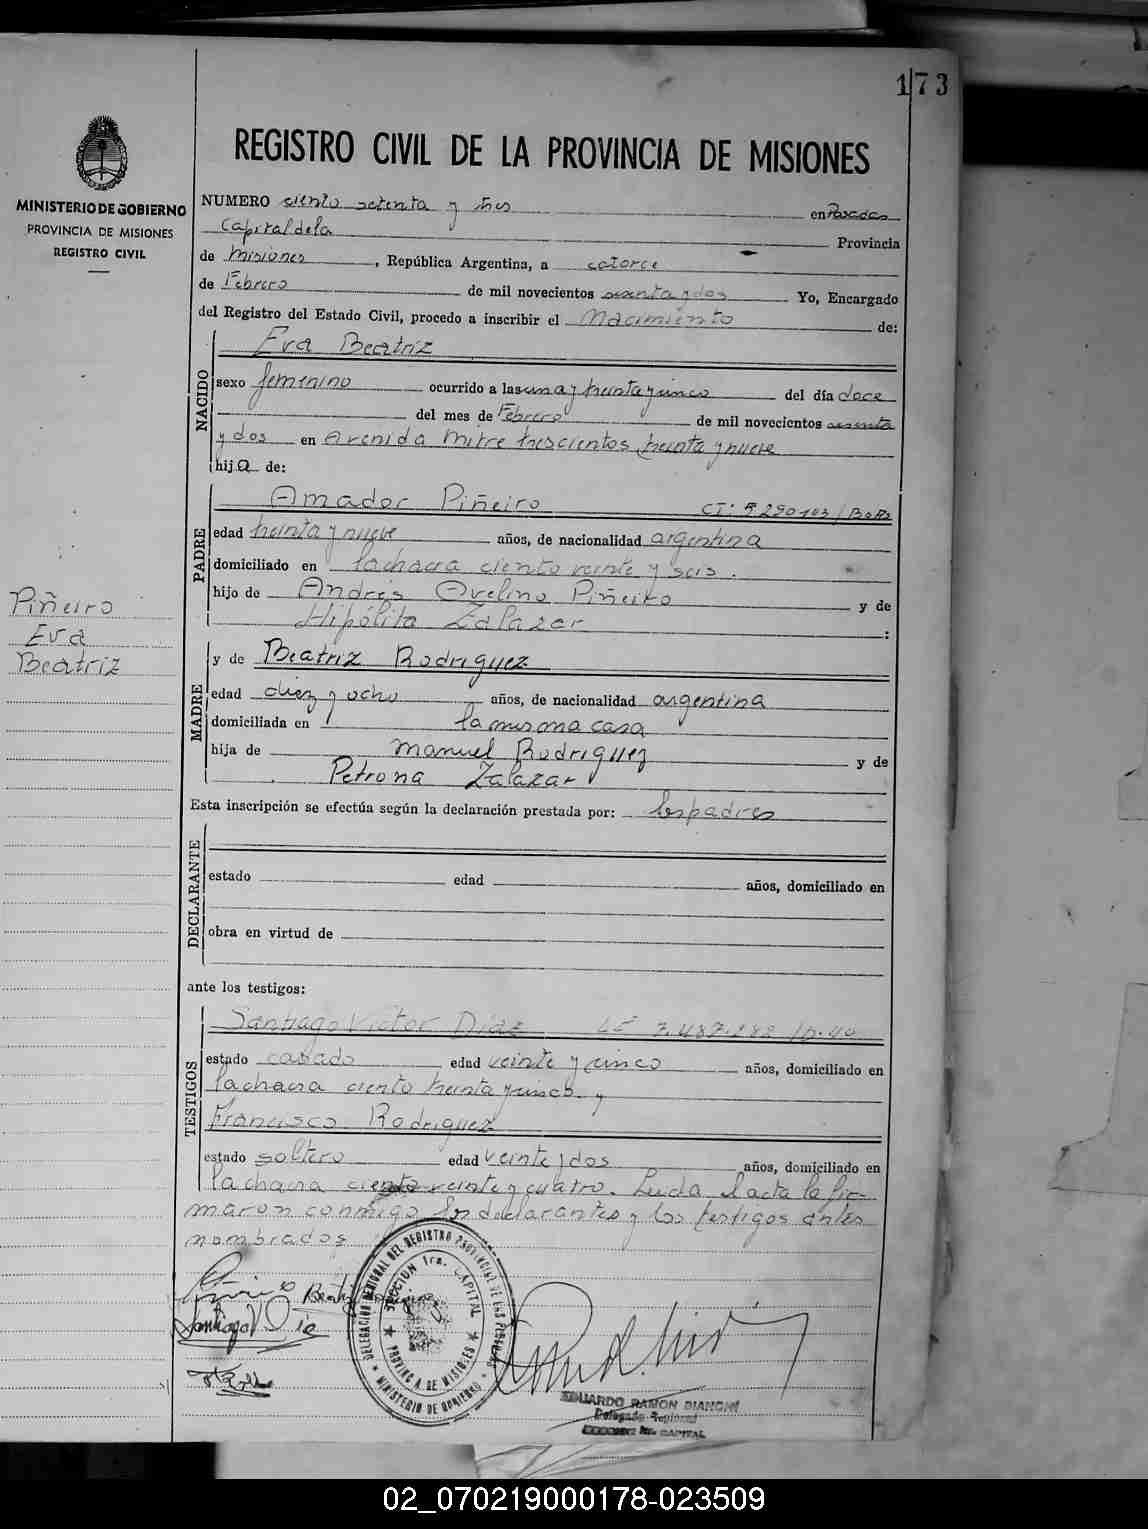 173
REGISTRO CIVIL DE LA PROVINCIA DE MISIONES
MINISTERIO DE GOBIERNO
PROVINCIA DE MISIONES
REGISTRO CIVIL
NUMERO ciento setenta y tres en Posadas
Capital de la Provincia
de Misiones, República Argentina, a catorce
de Febrero de mil novecientos sesenta y dos Yo, Encargado
del Registro del Estado Civil, procedo a inscribir el Nacimiento de:
NACIDO
Eva Beatriz
sexo femenino ocurrido a las una y treinta y cinco del día doce
del mes de Febrero de mil novecientos sesenta
y dos en Avenida Mitre trescientos treinta y nueve
hija de:
PADRE
Amador Piñeiro CI:
edad treinta y nueve años, de nacionalidad argentina
domiciliado en la chacra ciento veinte y seis.
hijo de Andrés Avelino Piñeiro y de
Hipólita Zalazar :
Piñeiro
Eva
Beatriz
MADRE
y de Beatriz Rodriguez
edad diez y ocho años, de nacionalidad argentina
domiciliada en la misma casa
hija de Manuel Rodriguez y de
Petrona Zalazar
Esta inscripción se efectúa según la declaración prestada por: los padres
DECLARANTE
estado edad años, domiciliado en
obra en virtud de
ante los testigos:
TESTIGOS
Santiago Victor Diaz LE 7.487.288
estado casado edad veinte y cinco años, domiciliado en
la chacra ciento treinta y cinco y
Francisco Rodriguez
estado soltero edad veinte y dos años, domiciliado en
la chacra ciento veinte y cuatro. Leida el acta la fir-
maron conmigo los declarantes y los testigos antes
nombrados
Santiago V. Diaz
DELEGACION REGIONAL DEL REGISTRO PROVINCIAL DE LAS PERSONAS
SECCION 1ra. CAPITAL
PROVINCIA DE MISIONES
MINISTERIO DE GOBIERNO
EDUARDO RAMON BIANCHI
Delegado Regional
CAPITAL
02_070219000178-023509